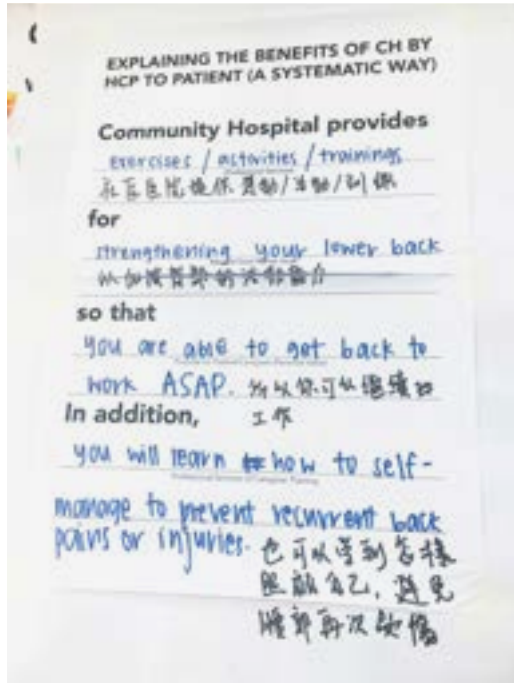 EXPLAINING THE BENEFITS OF CH BY
HCP TO PATIENT (A SYSTEMATIC WAY)
Community Hospital provides
exercises / activities / trainings
社区医院提供运动/活动/训练
for
strengthening your lower back
以加强背部的活动能力
so that
you are able to get back to
work ASAP. 所以你可以继续
工作
In addition,
you will learn how to self-
manage to prevent recurrent back
pains or injuries. 也可以学到怎样
照顾自己, 避免
腰部再次